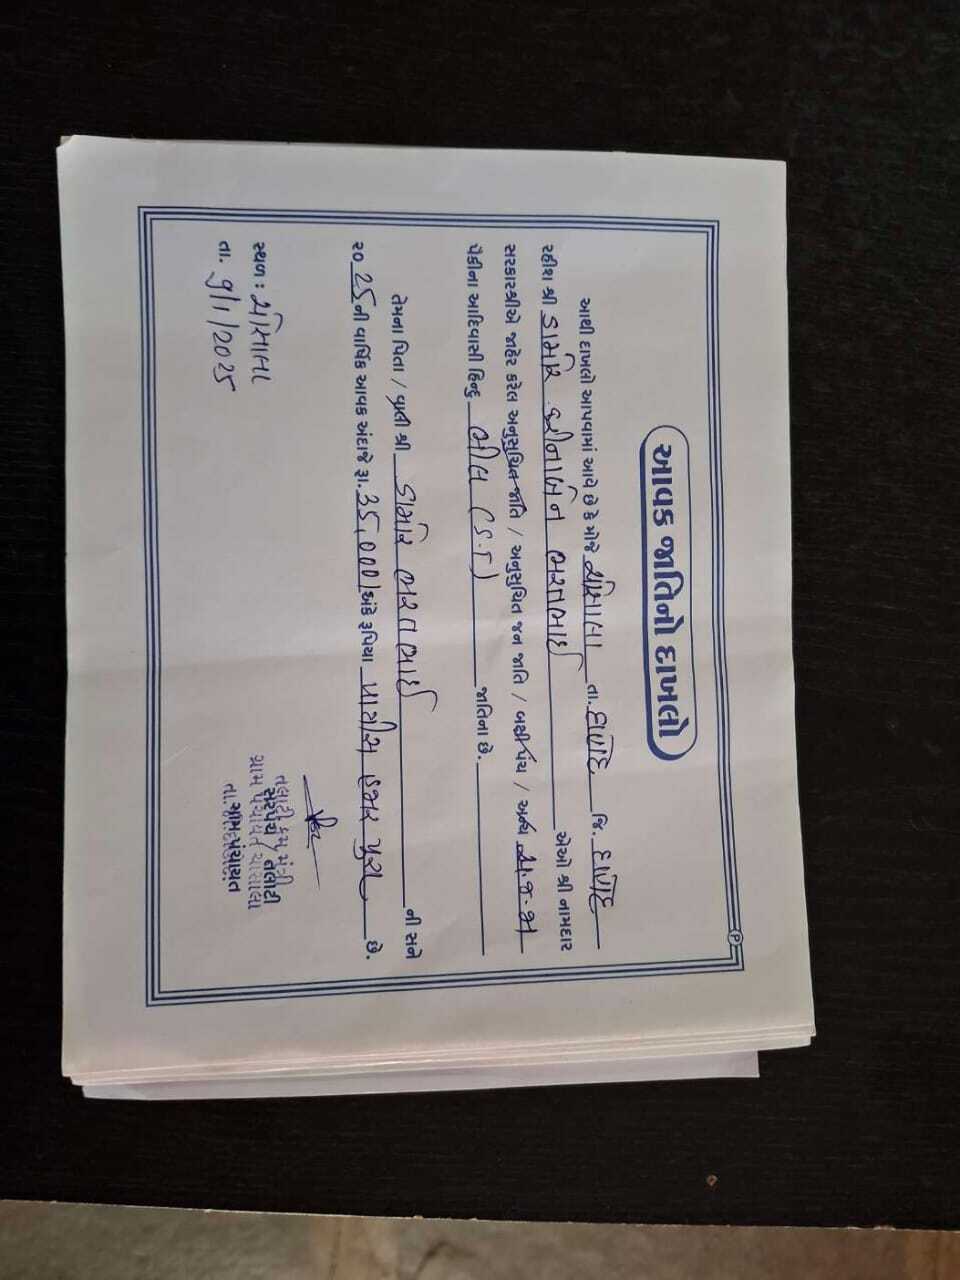 આવક જાતિનો દાખલો
આથી દાખલો આપવામાં આવે છે કે મોજે થાસાલા તા. દાહોદ જિ. દાહોદ
રહીશ શ્રી ડામોર હીનાબેન ભરતભાઈ એઓ શ્રી નામદાર
સરકારશ્રીએ જાહેર કરેલ અનુસુચિત જાતિ / અનુસુચિત જન જાતિ / બક્ષીપંચ / અન્ય અ.જ.જા
પૈકીના આદિવાસી હિન્દુ ભીલ (S.T) જાતિના છે.
તેમના પિતા / પતી શ્રી ડામોર ભરતભાઈ ની સને
૨૦25ની વાર્ષિક આવક અંદાજે રૂા. 35,000/ અંકે રૂપિયા પાત્રીસ હજાર પુરા છે.
સ્થળ :
તા. 9/1/2025
તલાટી કમ મંત્રી
સરપંચ / તલાટી
ગ્રામ પંચાયત